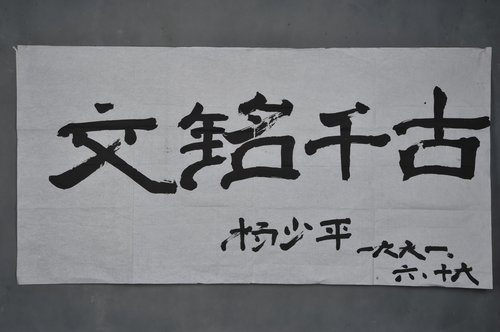 文铭千古
杨少平
一九九一.
六.十六